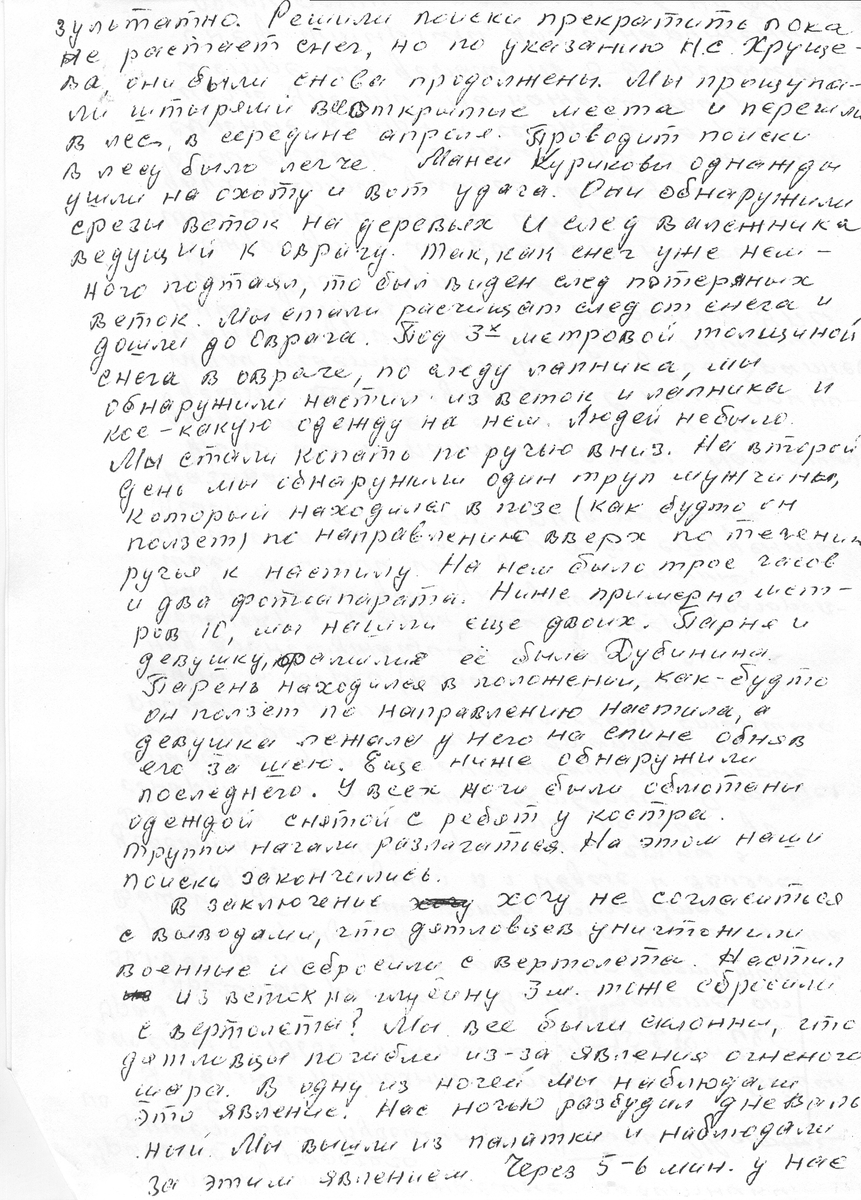 зультатно. Решили поиски прекратить пока
не растает снег, но по указанию Н.С. Хруще-
ва, они были снова продолжены. Мы прощупа-
ли штырями все открытые места и перешли
в лес, в середине апреля. Проводит поиски
в лесу было легче. Манси Куриковы однажды
ушли на охоту и вот удача. Они обнаружили
срезы веток на деревьях и след валежника
ведущий к оврагу. Так, как снег уже нем-
ного подтаял, то был виден след потеряных
веток. Мы стали расчищат след от снега и
дошли до оврага. Под 3х метровой толщиной
снега в овраге, по следу лапника мы
обнаружили настил из веток и лапника и
кое-какую одежду на нем. Людей небыло.
Мы стали копать по ручью вниз. На второй
день мы обнаружили один труп мужчины,
который находился в позе (как будто он
ползет) по направлению вверх по течению
ручья к настилу. На нем было трое часов
и два фотоапарата. Ниже примерно мет-
ров 10, мы нашли еще двоих. Парня и
девушку, фамилия её была Дубинина.
Парень находился в положении, как-будто
он ползёт по направлению настила, а
девушка лежала у него на спине обняв
его за шею. Еще ниже обнаружили
последнего. У всех ноги были обмотаны
одеждой снятой с ребят у костра.
Труппы начали разлагаться. На этом наши
поиски закончились.
В заключение хочу не согласиться
с выводами, что дятловцев уничтожили
военные и сбросили с вертолета. Настил
из веток на глубину 3 м. тоже сбросили
с вертолета? Мы все были склонны, что
дятловцы погибли из-за явления огненого
шара. В одну из ночей мы наблюдали
это явление. Нас ночью разбудил дневаль
ный. Мы вышли из палатки и наблюдали
за этим явлением. Через 5-6 мин. у нас